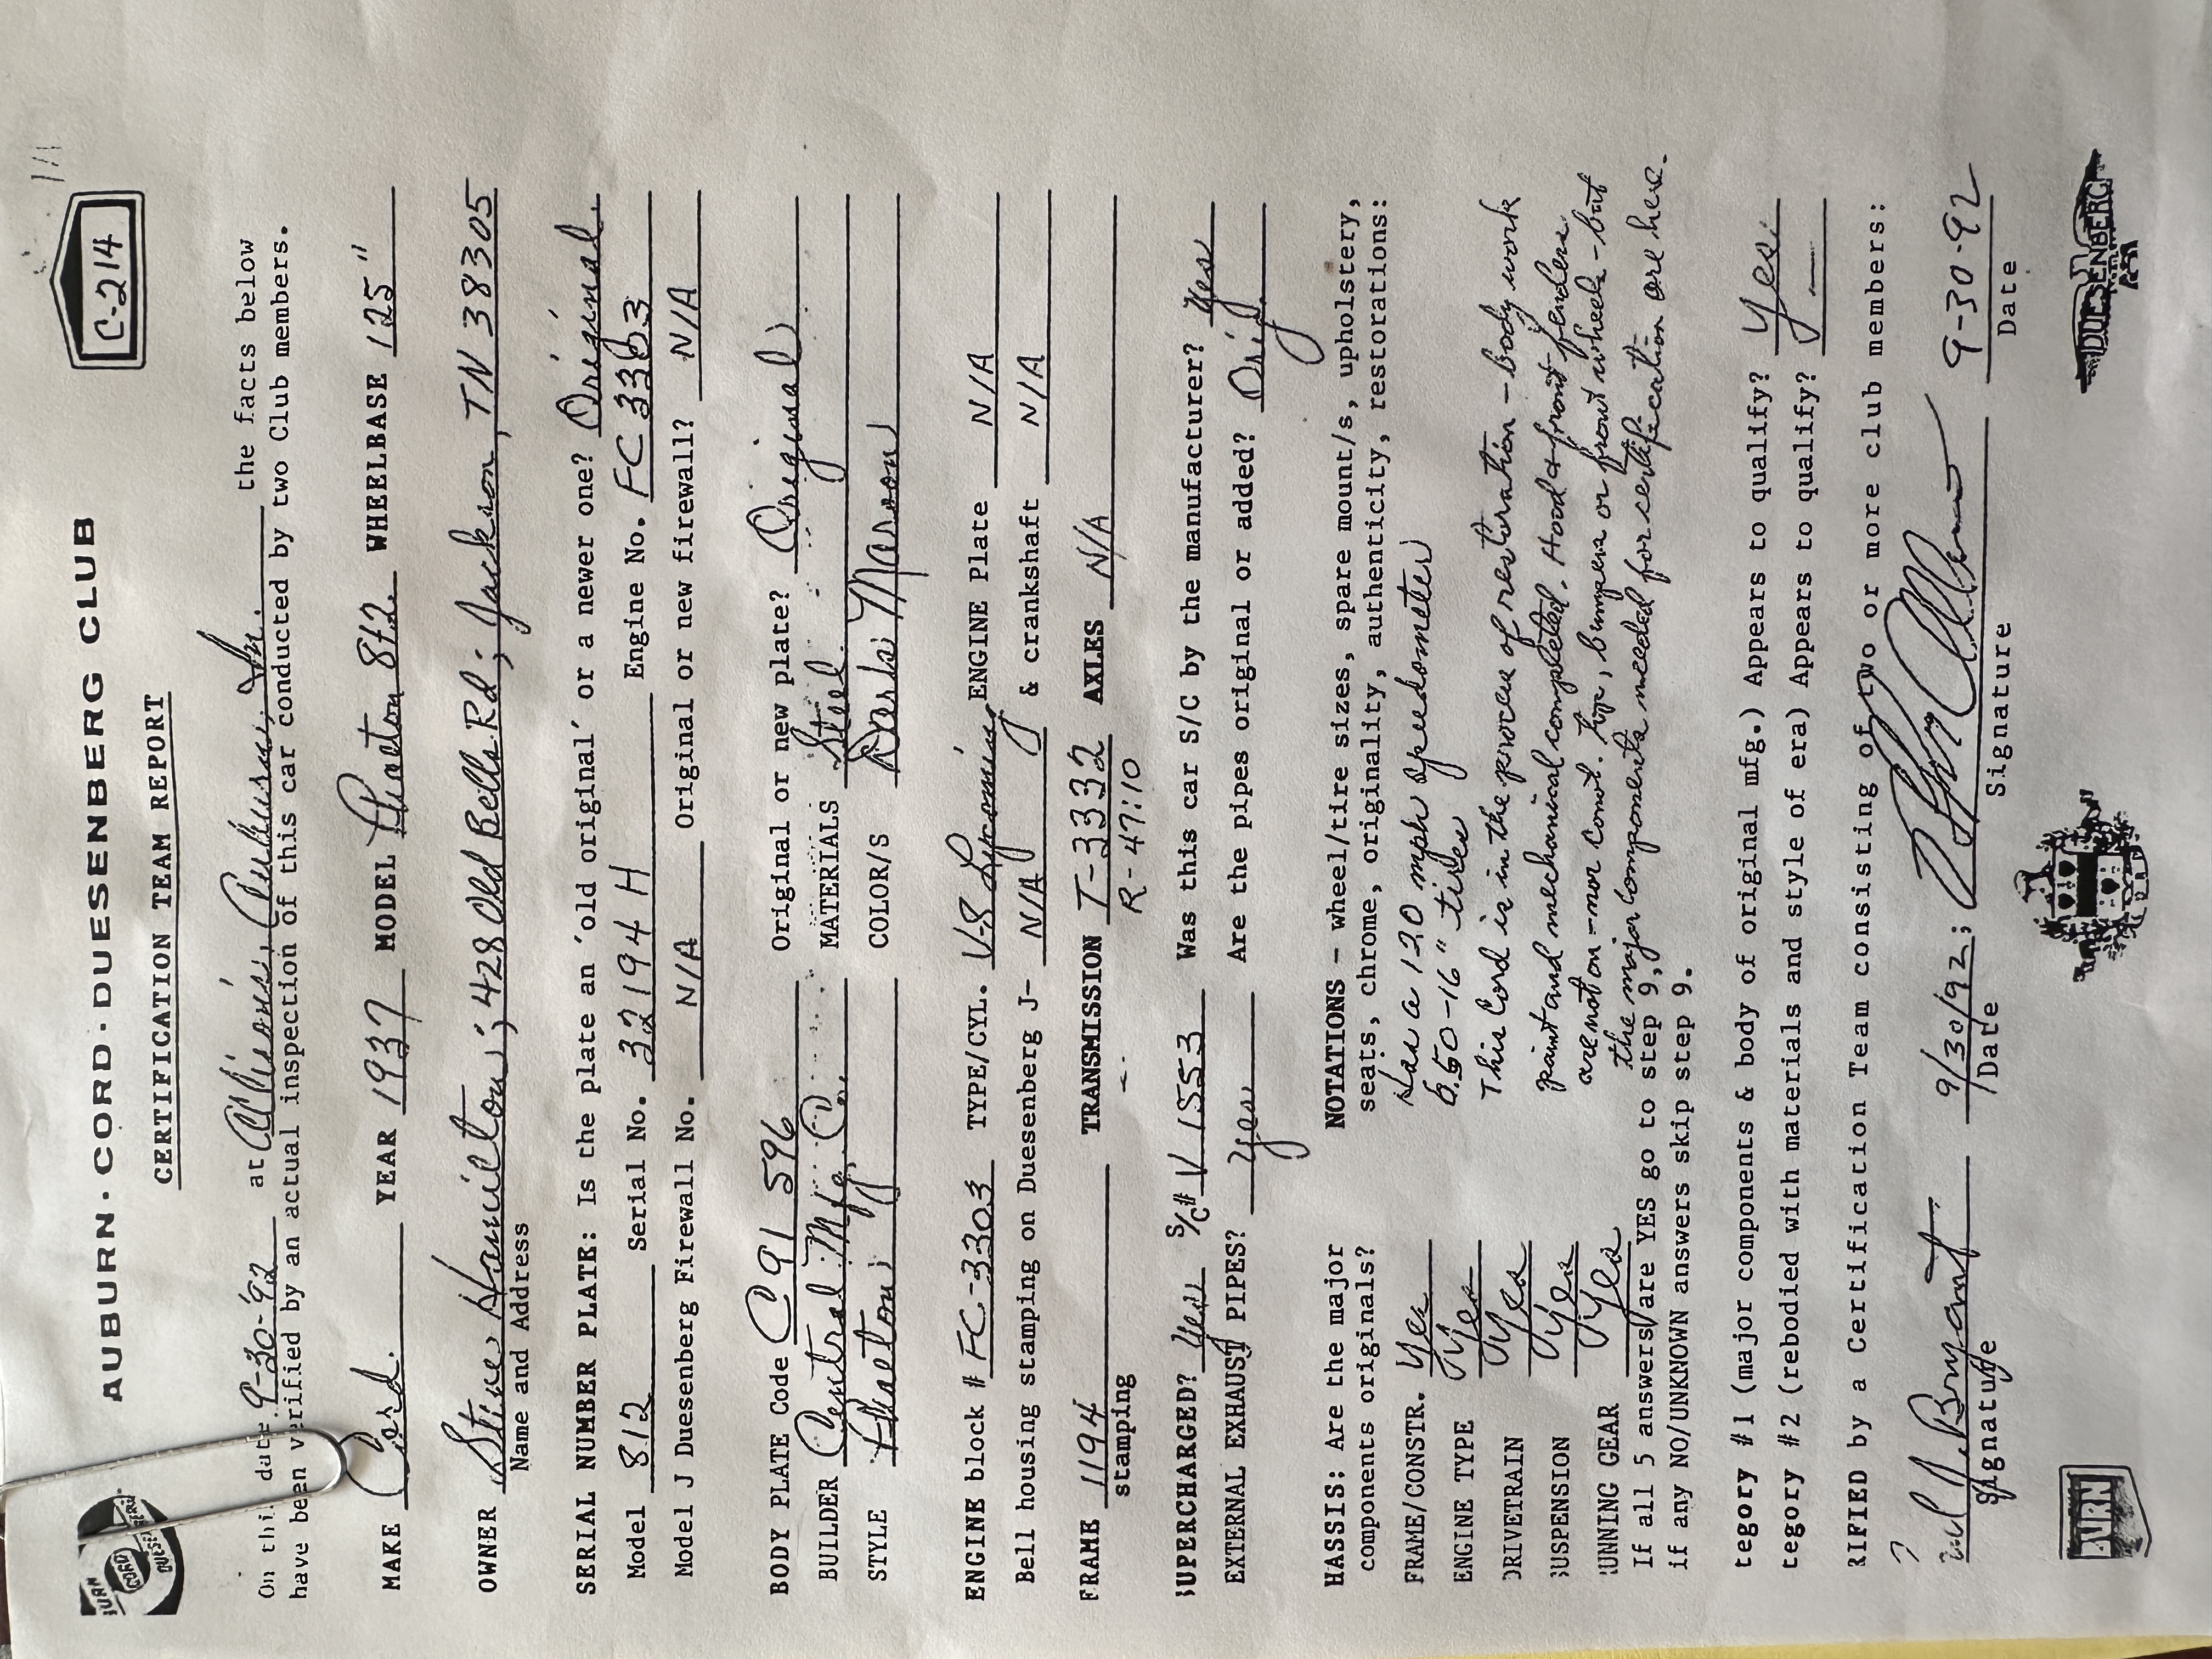 C-214
AUBURN·CORD·DUESENBERG CLUB
CERTIFICATION TEAM REPORT
On this date 9-30-'92 at Auburn, In. the facts below
have been verified by an actual inspection of this car conducted by two Club members.
MAKE Cord. YEAR 1937 MODEL Phaeton 812. WHEELBASE 125"
OWNER Hamilton; 428 Old Bells Rd; Jackson, TN 38305
Name and Address
SERIAL NUMBER PLATE: Is the plate an 'old original' or a newer one? Original
Model 812 Serial No. 32194 H Engine No. FC 3303
Model J Duesenberg Firewall No. N/A Original or new firewall? N/A
BODY PLATE Code C 91 596 Original or new plate? Original
BUILDER Central Mfg. Co. MATERIALS Steel
STYLE Phaeton COLOR/S Dark Maroon
ENGINE block # FC-3303 TYPE/CYL. V-8 Lycoming ENGINE Plate N/A
Bell housing stamping on Duesenberg J- N/A & crankshaft N/A
FRAME 1194 TRANSMISSION T-3332 AXLES N/A
stamping R-47:10
SUPERCHARGED? Yes S/C# V 1553 Was this car S/C by the manufacturer? Yes
EXTERNAL EXHAUST PIPES? Yes Are the pipes original or added? Orig
HASSIS: Are the major
components originals?
FRAME/CONSTR. Yes
ENGINE TYPE Yes
DRIVETRAIN Yes
SUSPENSION Yes
UNNING GEAR Yes
NOTATIONS - wheel/tire sizes, spare mount/s, upholstery,
seats, chrome, originality, authenticity, restorations:
Has a 120 mph speedometer
6.50-16" tires
This Cord is in the process of restoration - body work
paint and mechanical completed. Hood & front fenders
are not on - nor bumpers or front wheels - but
the major components needed for certification are here.
If all 5 answers are YES go to step 9,
if any NO/UNKNOWN answers skip step 9.
tegory #1 (major components & body of original mfg.) Appears to qualify? Yes.
tegory #2 (rebodied with materials and style of era) Appears to qualify? —
RIFIED by a Certification Team consisting of two or more club members:
Bryant 9/30/92; 9-30-92
Signature Date Signature Date
CORD
DUESENBERG